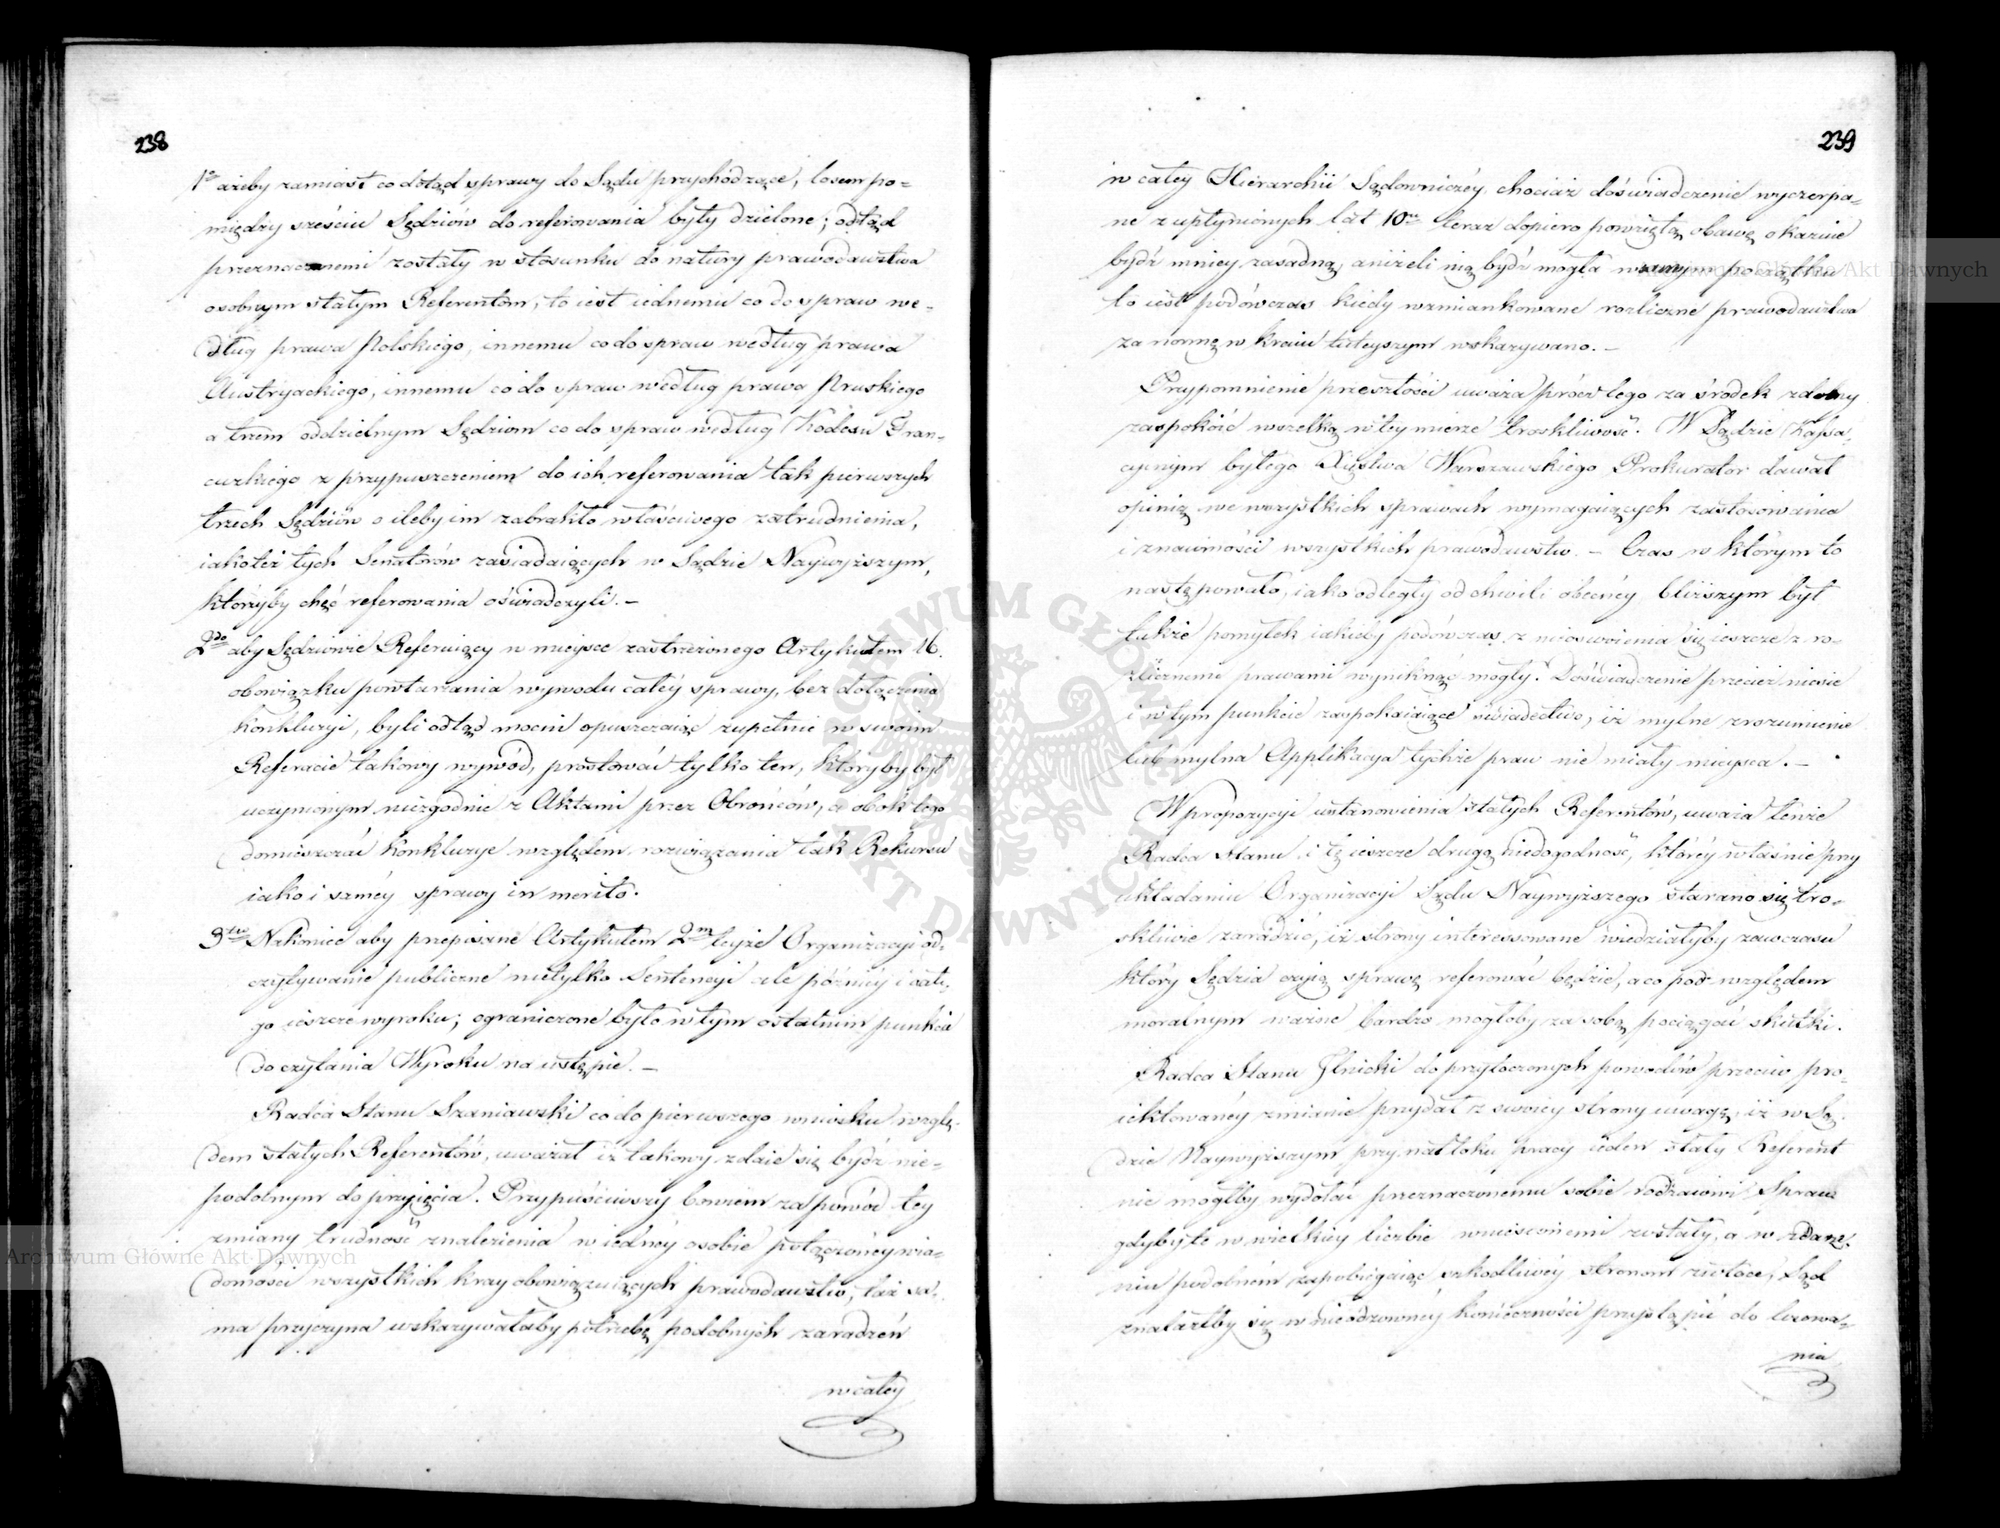 238
1o ażeby zamiast co dotąd sprawy do Sądu przychodzące, losem po=
między sześciu Sędziów do referowania były dzielone; odtąd
przeznaczonemi zostały w stosunku do natury prawodawstwa
osobnym stałym Referentom, to iest iednemu co do spraw we=
dług prawa Polskiego, innemu co do spraw według prawa
Austryackiego, innemu co do spraw według prawa Pruskiego
a trzem oddzielnym Sędziom co do spraw według Kodexu Fran=
cuzkiego z przypuszczeniem do ich referowania tak pierwszych
trzech Sędziów o ileby im zabrakło właściwego zatrudnienia,
iakoteż tych Senatorów zasiadaiących w Sądzie Naywyższym,
którzyby chęć referowania oświadczyli. –
2do aby Sędziowie Referuiący w mieysce zastrzeżonego Artykułem 16.
obowiązku powtarzania wywodu całey sprawy, bez dołączenia
Konkluzyi, byli odtąd mocni opuszczaiąc zupełnie w swoim
Referacie takowy wywód, prostować tylko ten, któryby był
uczynionym niezgodnie z Aktami przez Obrońców, a obok tego
domieszczać Konkluzye względem rozwiązania tak Rekursu
iako i saméy sprawy in merito.
3tio Nakoniec aby przepisane Artykułem 2m teyże Organizacyi od=
czytywanie publiczne nietylko Sentencyi ale późniéy i całe=
go ieszcze wyroku; ograniczone było w tym ostatnim punkcie
do czytania Wyroku na ustępie. –
Radca Stanu Szaniawski co do pierwszego wniosku wzglę=
dem stałych Referentów, uważał iż takowy zdaie się bydź nie=
podobnym do przyięcia. Przypuściwszy bowiem za powód tey
zmiany trudność znalezienia w iednéy osobie połączonéy wia=
domości wszystkich kray obowiązuiących prawodawstw, taż sa=
ma przyczyna wskazywałaby potrzebę podobnych zaradzeń
w całey
239
w całey Hierarchii Sądowniczéy, chociaż doświadczenie wyczerpa=
ne z upłynionych lat 10u teraz dopiero powziętą obawę okazuie
bydź mniey zasadną, aniżeli nią bydź mogła w samym początku
to iest podówczas kiedy wzmiankowane rozliczne prawodawstwa
za normę w kraiu tuteyszym wskazywano. –
Przypomnienie przeszłości uważa prócz tego za środek zdolny
zaspokoić wszelką w tey mierze troskliwość. W Sądzie Kassa=
cyinym byłego Xięstwa Warszawskiego Prokurator dawał
opinią we wszystkich sprawach wymagaiących zastosowania
i znaiomości wszystkich prawodawstw. – Czas w którym to
następowało, iako odległy od chwili obecnéy bliższym był
także pomyłek iakieby podówczas z nieoswoienia się ieszcze z ro=
zlicznemi prawami wyniknąć mogły. Doświadczenie przecież niesie
i w tym punkcie zaspokaiaiące świadectwo, iż mylne zrozumienie
lub mylna Applikacya tychże praw nie miały mieysca. –
W propozycyi ustanowienia stałych Referentów, uważa tenże
Radca Stanu i tę ieszcze drugą niedogodność, któréy właśnie przy
układaniu Organizacyi Sądu Naywyższego starano się tro=
skliwie zaradzić, iż strony interessowane wiedziałyby zawczasu
który Sędzia czyią sprawę referować będzie, a co pod względem
moralnym ważne bardzo mogłoby za sobą pociągać skutki.
Radca Stanu Ilnicki do przytoczonych powodów przeciw pro=
iektowanéy zmianie przydał z swoiey strony uwagę, iż w Są=
dzie Naywyższym przy natłoku pracy ieden stały Referent
nie mógłby wydołać przeznaczonemu sobie rodzaiowi Spraw
gdyby te w wielkiey liczbie wniesionemi zostały, a w zdarze=
niu podobném zapobiegaiąc szkodliwéy stronom zwłoce, Sąd
znalazłby się w nieodzownéy konieczności przystąpić do losowa=
nia
Archiwum Główne Akt Dawnych
Archiwum Główne Akt Dawnych
ARCHIWUM GŁÓWNE AKT DAWNYCH